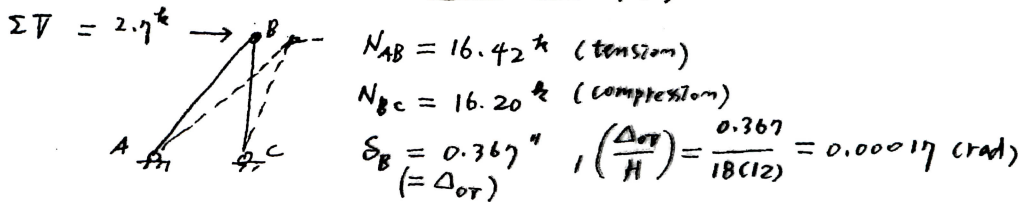 ΣV = 2.7ᵏ → B
N_AB = 16.42ᵏ (tension)
N_BC = 16.20ᵏ (compression)
A C δ_B = 0.367" , (Δ_OT/H) = 0.367/18(12) = 0.00017 (rad)
(= Δ_OT)